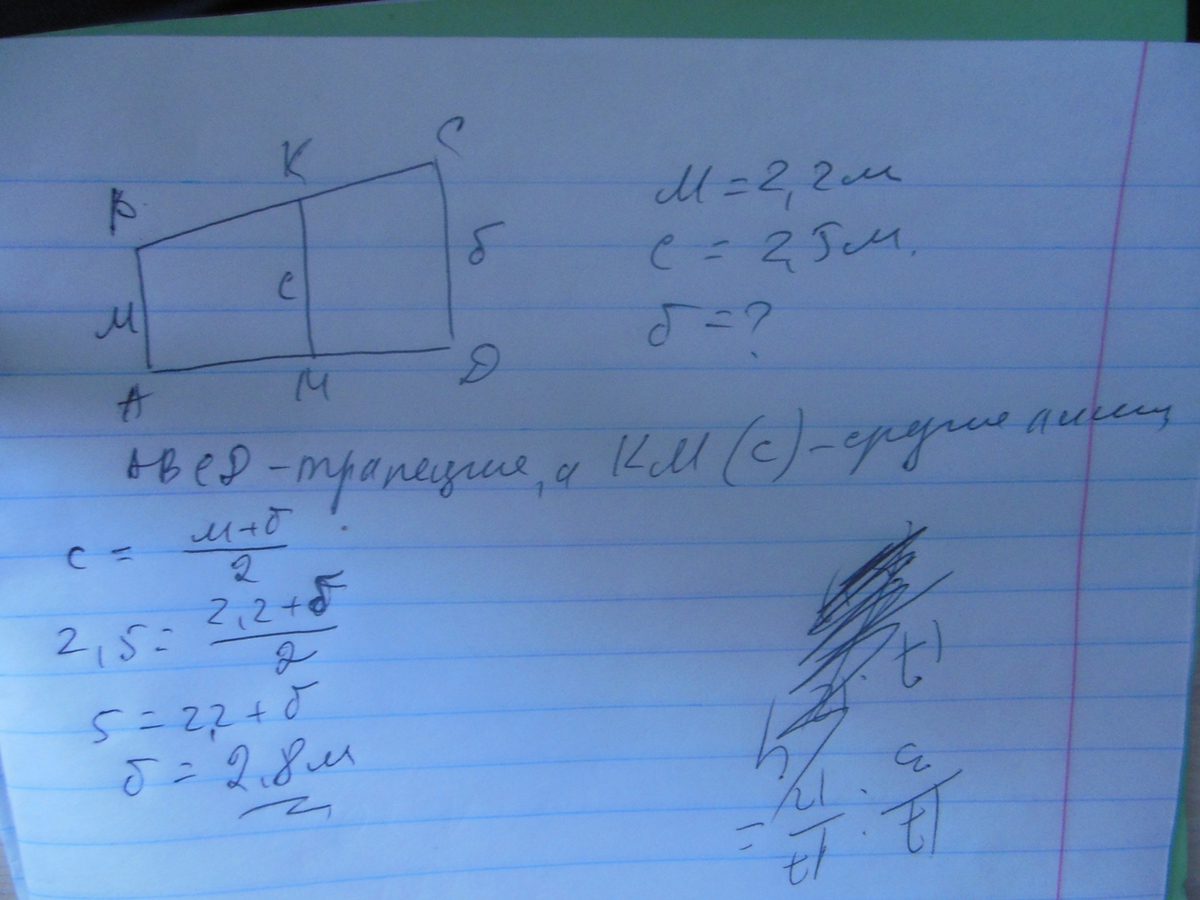 К
С
В
б
М
с
А
М
D
М = 2,2 м
с = 2,5 м.
б = ?
ABCD - трапеция, а КМ (с) - средняя линия
с = м+б/2
2,5 = 2,2+б/2
5 = 2,2 + б
б = 2,8 м